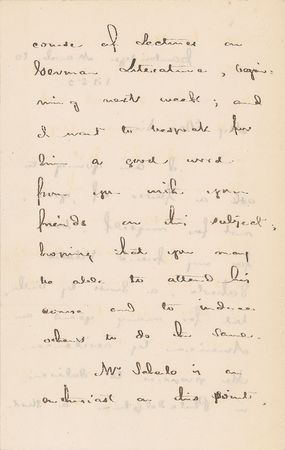 course of Lectures on
German Literature, begin-
ning next week; and
I want to bespeak for
him a good word
from you with your
friends on this subject,
hoping that you may
be able to attend his
course and to induce
others to do the same.
Mr. is an
enthusiast on this point,